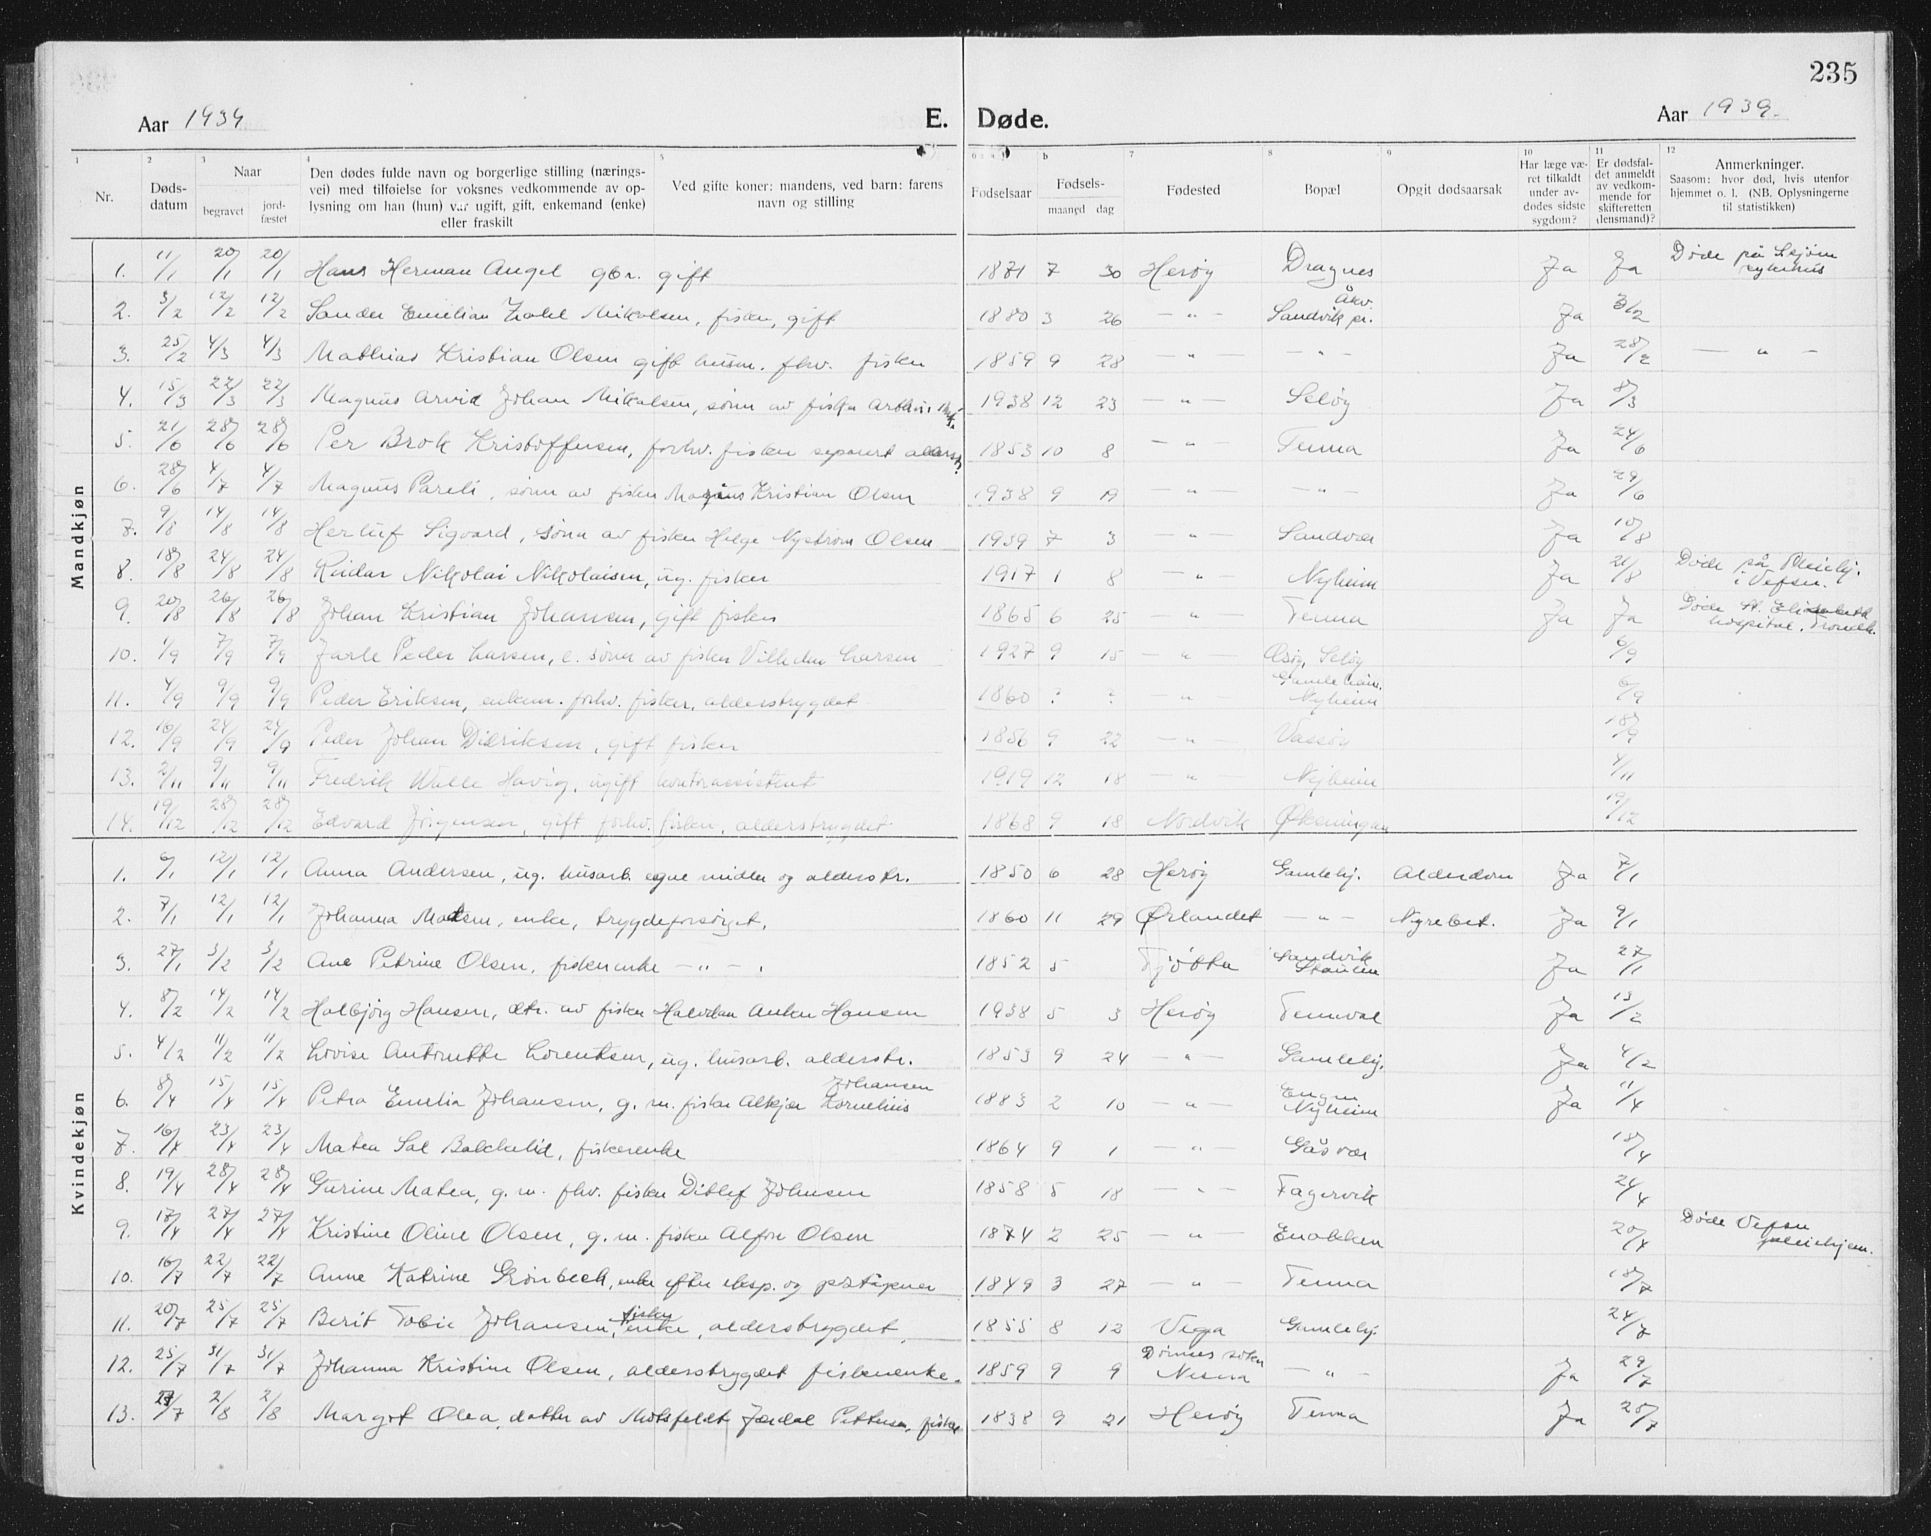 235
Aar 1939
E. Døde.
Aar 1939.
1 2 3 4 5 6 b 7 8 9 10 11 12
Nr.
Døds-
datum
Naar
begravet
jord-
fæstet
Den dødes fulde navn og borgerlige stilling (nærings-
vei) med tilføielse for voksnes vedkommende av op-
lysning om han (hun) var ugift, gift, enkemand (enke)
eller fraskilt
Ved gifte koner: mandens, ved barn: farens
navn og stilling
Fødselsaar
Fødsels-
maaned dag
Fødested
Bopæl
Opgit dødsaarsak
Har læge væ-
ret tilkaldt
under av-
dødes sidste
sygdom?
Er dødsfal-
det anmeldt
av vedkom-
mende for
skifteretten
(lensmand)?
Anmerkninger.
Saasom: hvor død, hvis utenfor
hjemmet o. l. (NB. Oplysningerne
til statistikken)
Mandkjøn
1. 11/1 20/1 20/1 Hans Herman Angel gbr. gift 1871 7 30 Herøy Dragnes Ja Ja Døde på
sykehus
2. 3/2 12/2 12/2 Sander Emilian Zahl Mikalsen, fisker, gift 1880 3 26 — " — Sandvik pr. Åkv. Ja 3/2
3. 25/2 4/3 4/3 Mathias Kristian Olsen gift husm. fhv. fisker 1859 9 28 — " — — " — Ja 28/2 — " —
4. 15/3 22/3 22/3 Magnus Arvid Johan Mikalsen, sønn av fisker 1938 12 23 — " — Seløy Ja 8/3
5. 21/6 28/6 28/6 Per Brok Kristoffersen, forhv. fisker separert 1853 10 8 — " — Tenna Ja 24/6
6. 28/6 4/7 4/7 Magnus Pareli, sønn av fisker Magnus Kristian Olsen 1938 9 19 — " — — " — Ja 29/6
7. 9/8 14/8 14/8 Herluf Sigvard, sønn av fisker Helge Nystrøm Olsen 1939 7 3 — " — Sandvær Ja 10/8
8. 18/8 24/8 24/8 Reidar Nikolai Nikolaisen, ug. fisker 1917 1 8 — " — Nyheim Ja 21/8 Døde på Pleiehj.
i Vefsn.
9. 20/8 26/8 26/8 Johan Kristian Johansen, gift fisker 1865 6 25 — " — Tenna Ja Ja Døde St. Elisabeth
hospital, Trondh.
10. 1/9 7/9 7/9 Jarle Peder Larsen, e. sønn av fisker Vilhelm Larsen 1927 9 15 — " — Seløy 6/9
11. 4/9 9/9 9/9 Peder Eriksen, enkem. forhv. fisker, alderstrygdet 1860 ? ? — " — Nyheim 6/9
12. 16/9 24/9 24/9 Peder Johan Didriksen, gift fisker 1856 9 22 — " — Vassøy 18/9
13. 2/11 9/11 9/11 Fredrik Walle Havig, ugift kontorassistent 1919 12 18 — " — Nyheim 4/11
14. 19/12 28/12 28/12 Edvard Jørgensen, gift forhv. fisker, alderstrygdet 1868 9 18 Nordvik Økseningan 19/12
Kvindekjøn
1. 6/1 12/1 12/1 Anna Andersen, ug. husarb. egne midler og alderstr. 1850 6 28 Herøy Gamlehj. Alderdom Ja 7/1
2. 7/1 12/1 12/1 Johanna Madsen, enke, trygdeforsørget. 1860 11 29 Ørlandet — " — Nyrebet. Ja 9/1
3. 27/1 3/2 3/2 Ane Petrine Olsen, fiskerenke — " — . 1852 5 Tjøtta Sandvik
Ja 27/1
4. 8/2 14/2 14/2 Halbjørg Hansen, dtr. av fisker Halvdan Anker Hansen 1938 5 3 Herøy Tenneval Ja 13/2
5. 4/2 11/2 11/2 Lovise Antonette Lorentsen, ug. husarb. alderstr. 1853 9 24 — " — Gamlehj. Ja 4/2
6. 8/4 15/4 15/4 Petra Emelia Johansen, g. m. fisker Alkjær Kornelius Johansen 1883 2 10 — " — Engen
Nyheim Ja 11/4
7. 16/4 23/4 23/4 Matea Sal Bakkelid, fiskerenke 1864 9 1 — " — Gåsvær 18/4
8. 19/4 28/4 28/4 Gurine Matea, g. m. fhv. fisker Ditlef Johnsen 1858 5 18 — " — Fagervik 24/4
9. 17/4 27/4 27/4 Kristine Oline Olsen, g. m. fisker Alfon Olsen 1874 2 25 — " — Enobben 20/4 Døde Vefsn
pleiehjem.
10. 16/7 22/7 22/7 Anne Katrine Grønbech, enke efter eksp. og poståpner 1849 3 27 — " — Tenna 18/7
11. 20/7 25/7 25/7 Berit Tobie Johansen, fisker enke, alderstrygdet 1855 8 12 Vega Gamlehj. 24/7
12. 25/7 31/7 31/7 Johanna Kristine Olsen, alderstrygdet fiskerenke. 1859 9 9 Dønnes sokn
Nesna — " — Ja 29/7
13. 2/8 2/8 Margot Olea, datter av Motsfeldt Jærdal Pettersen, fisker 1838 9 21 Herøy Tenna Ja 28/7